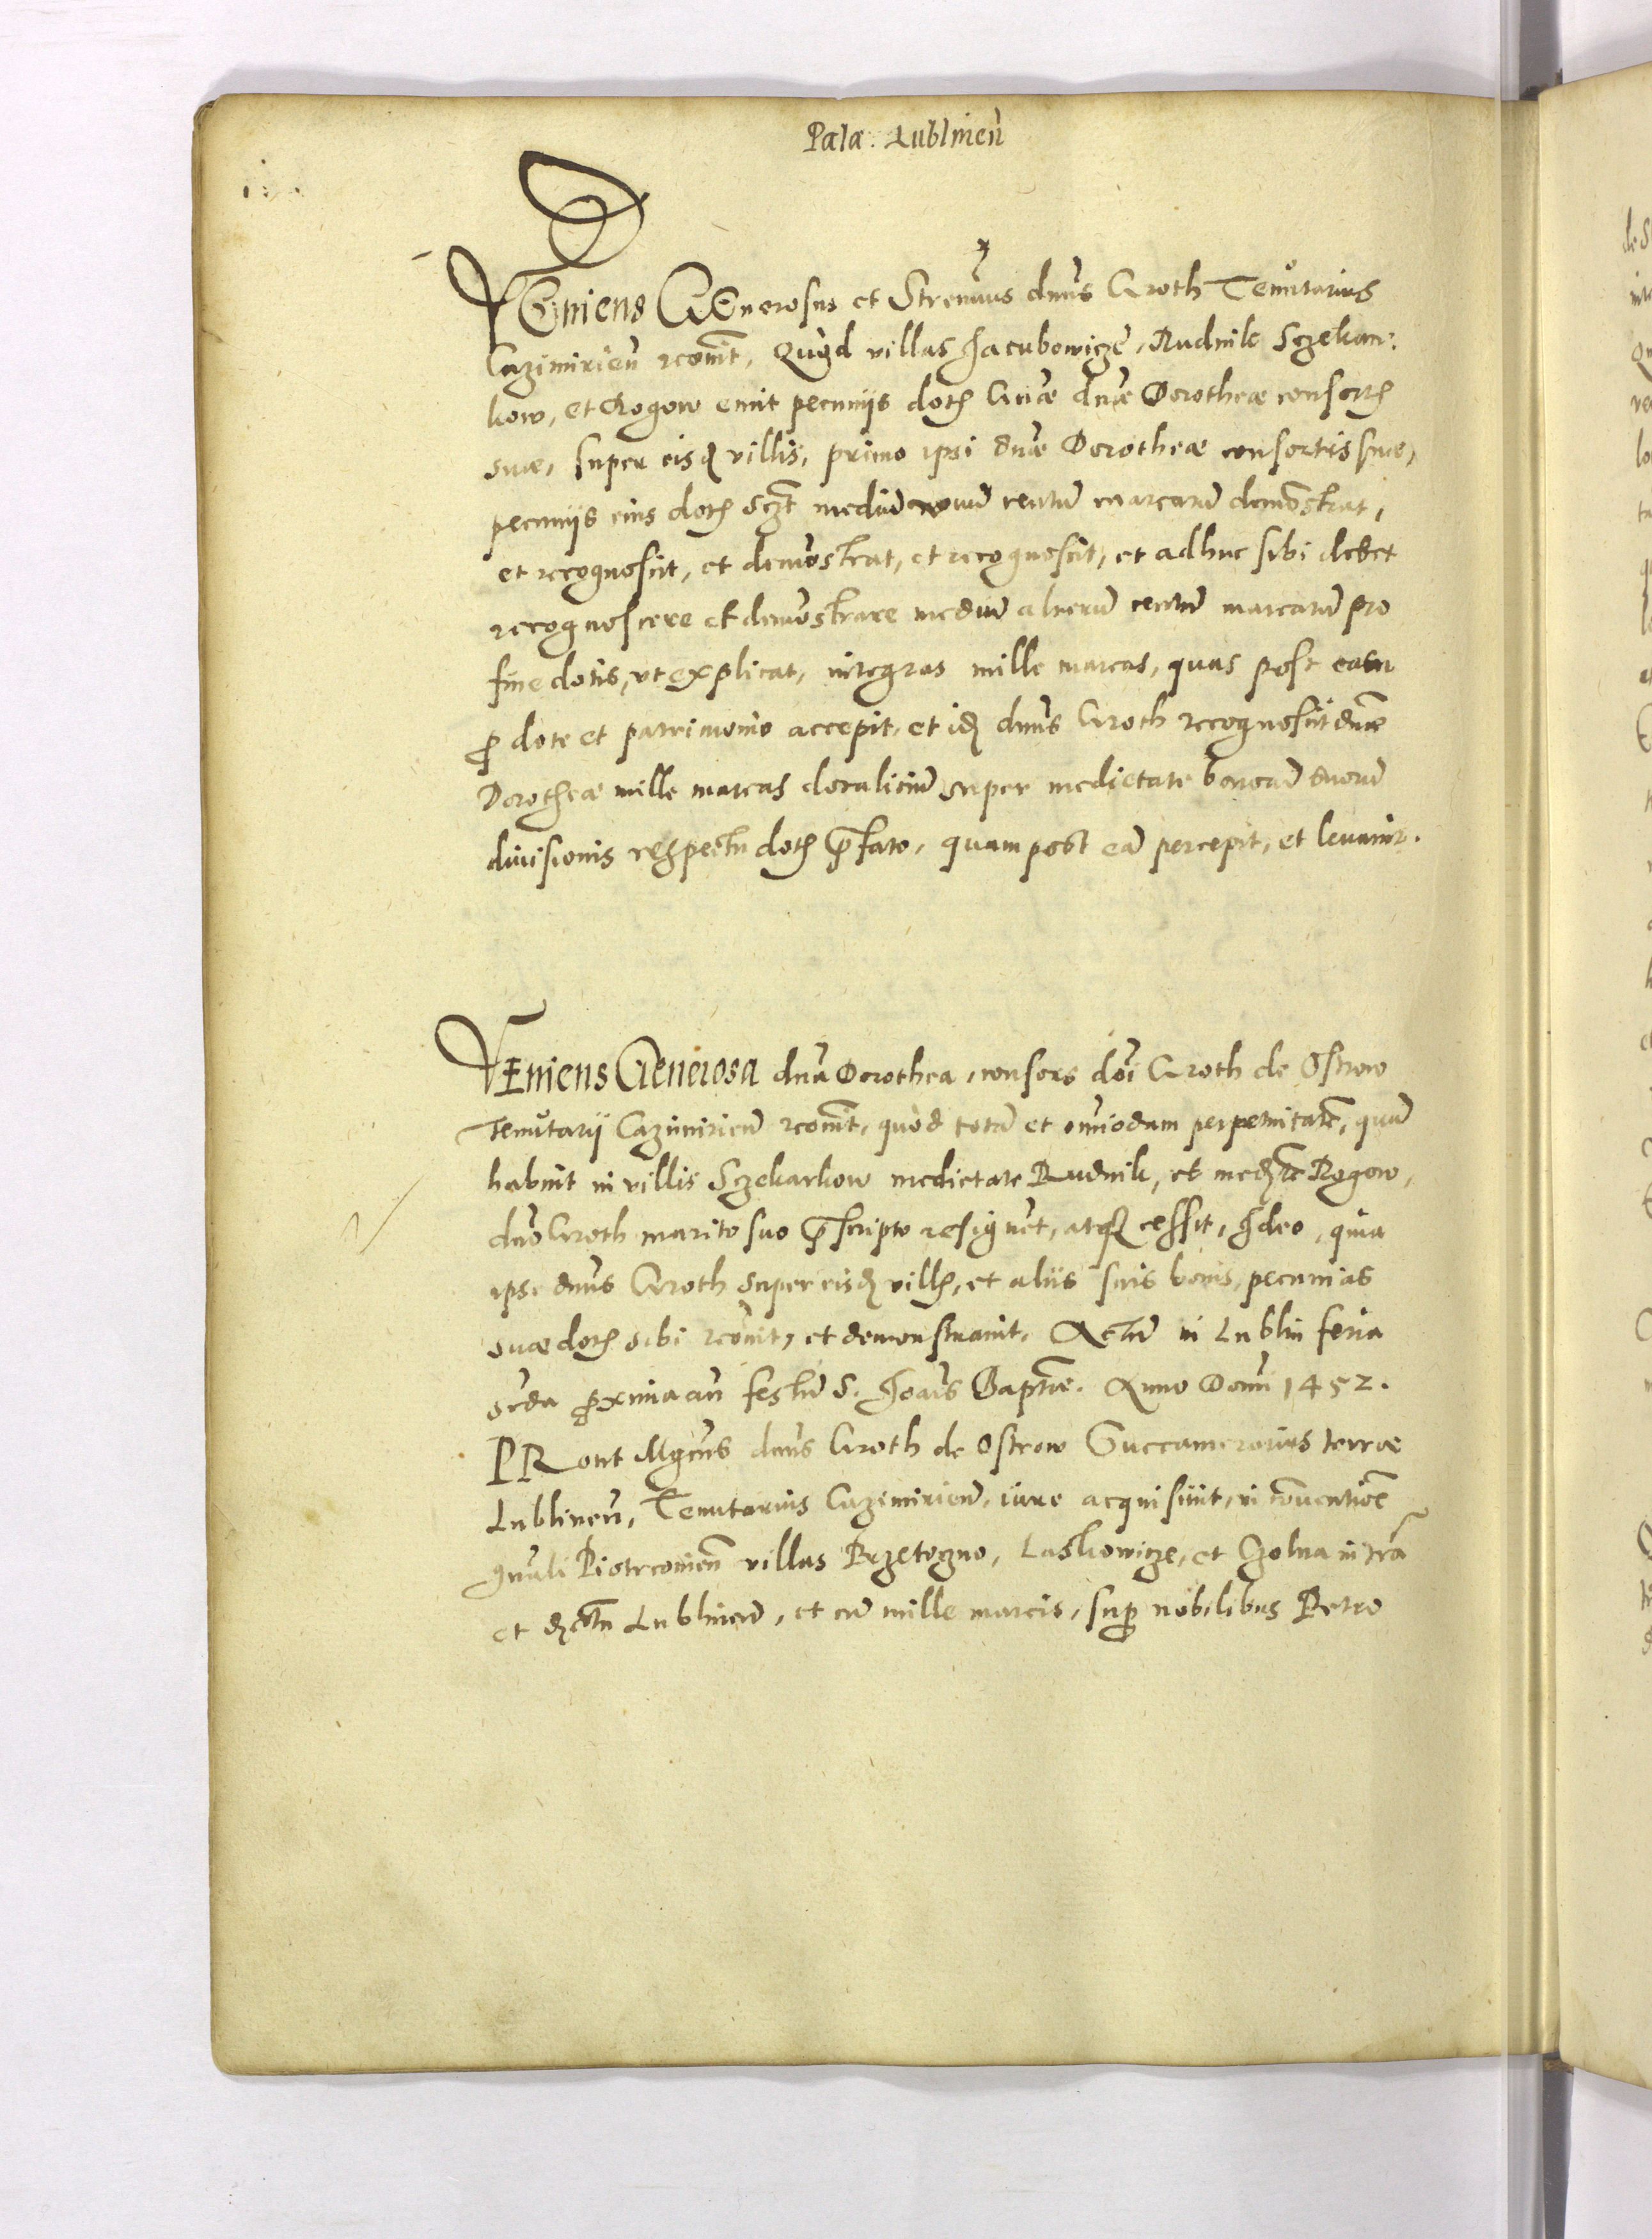 Pala: Lublineñ
VEniens GEnerosus et Strenuus dnus Groth Tenutarius
Cazimirieñ recovit, Quod villas Jacubowicze, Rudnik Sczekar:
kow, et Rogow emit pecuniis doth Gnae dnae Dorotheae consorth
suae, super eisd villis, primo ipsi dnae Dorotheae consortis suae,
pecuniis eius doth medium centum marcarum demonstrat,
et recognoscit, et demonstrat, et recognoscit, et adhuc sibi debet
recognoscere et demonstrare medium alnerum centum marcarum pro
fine dotis, vt explicat, integras mille marcas, quas post eam
p dote et patrimonio accepit, et id dnus Groth recognoscit dnae
Dorotheae mille marcas doralicium super medietate bonorum suorum
divisionis respectu doth pfato, quam post ea percepit, et levavit.
VEniens Generosa dna Dorothea, consors doi Groth de Ostrow
Tenutarii Cazimirieñ recovit, quod totam et omiodam perpetuitatē, quam
habuit in villis Sczekarkow medietate Rudnik, et medte Rogow,
dno Groth marito suo pscripto resignet, atq cessit, Ideo, quia
ipse dnus Groth super eisd villh, et aliis suis bonis, pecunias
suae doth sibi recovit, et demonstravit. Actum in Lublin feria
scda pxima an festum S. Joañis Baptae. Anno Domi 1452.
PRout Mgcus dnus Groth de Ostrow Succamerarius terrae
Lublineñ, Tenutarius Cazimirieñ, iure acquisiuit, in conventioe
gnali Piotrcovieñ villas Przetogno, Laskowicze, et Czolna in tra
et dctu Lublineñ, et cum mille marcis, sup nobilibus Petro